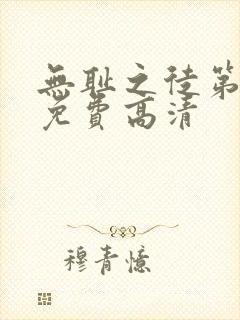 無耻之徒第
免費高清
穆青憶